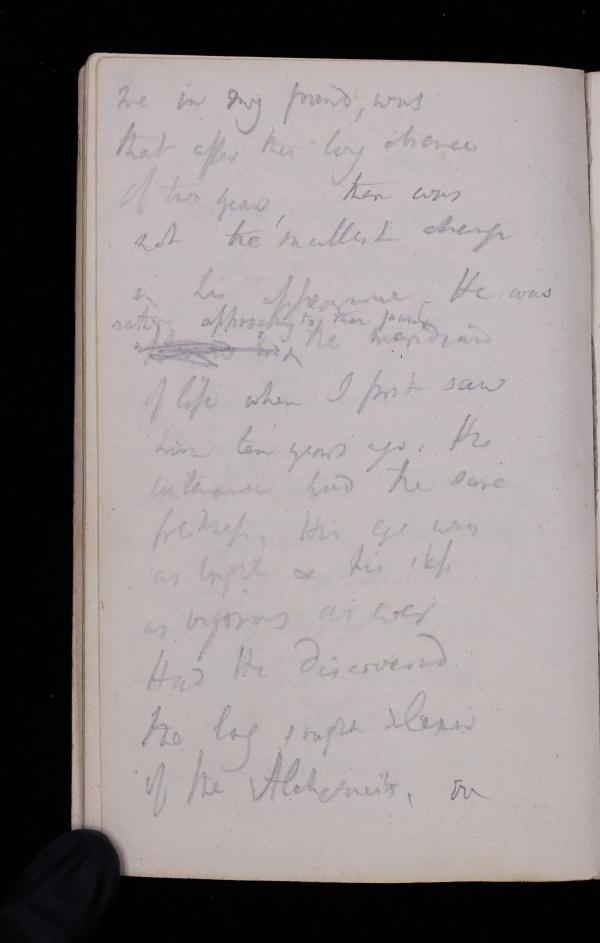 me in my friend, was
that after this long absence
of ten years, there was
not the smallest change
in his appearance. He was
rather approaching to than passed
the meridian
of life when I first saw
him ten years ago. His
countenance had the same
freshness, His eye was
as bright & his step
as vigorous as ever
Had He discovered
the long sought Elixir
of the Alchemists, or